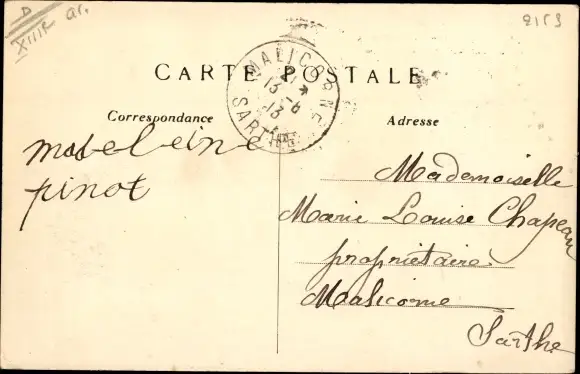 D
XIIIe ar.
2153
CARTE POSTALE
MALICORNE
21 *
13 - 6
13
SARTHE
Correspondance
Adresse
madeleine
pinot
Mademoiselle
Marie Louise Chapeau
propriétaire
Malicorne
Sarthe